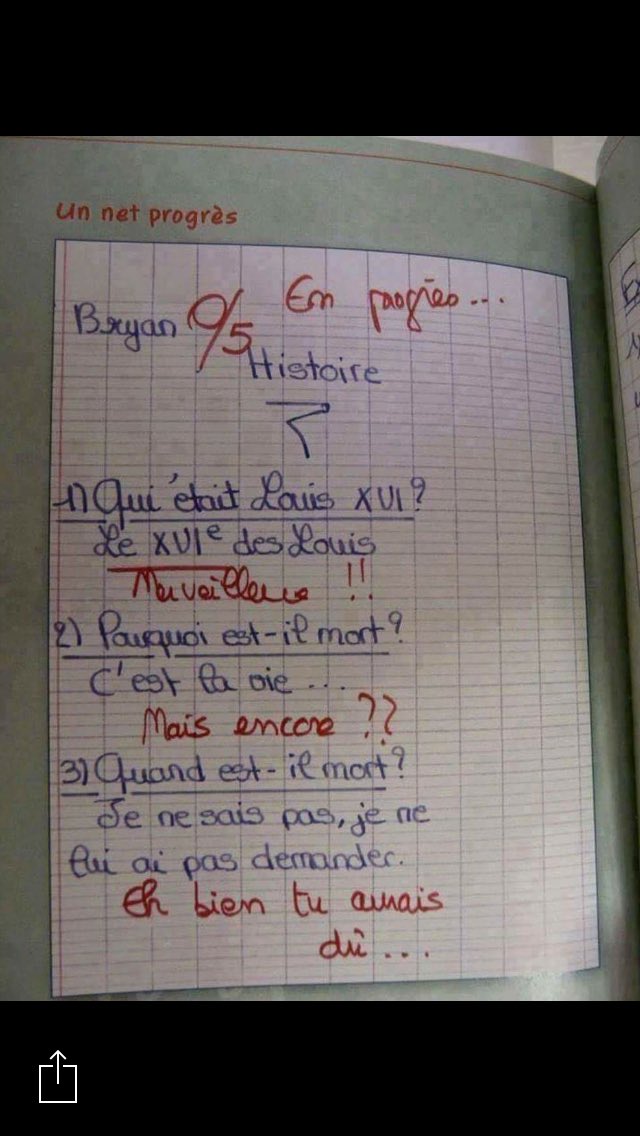 Un net progrès
Bryan 0/5 En progrès...
Histoire
1) Qui était Louis XVI?
Le XVIe des Louis
Merveilleux !!
2) Pourquoi est-il mort?
C'est la vie ...
Mais encore ??
3) Quand est-il mort?
Je ne sais pas, je ne
lui ai pas demander.
Eh bien tu aurais
dû...